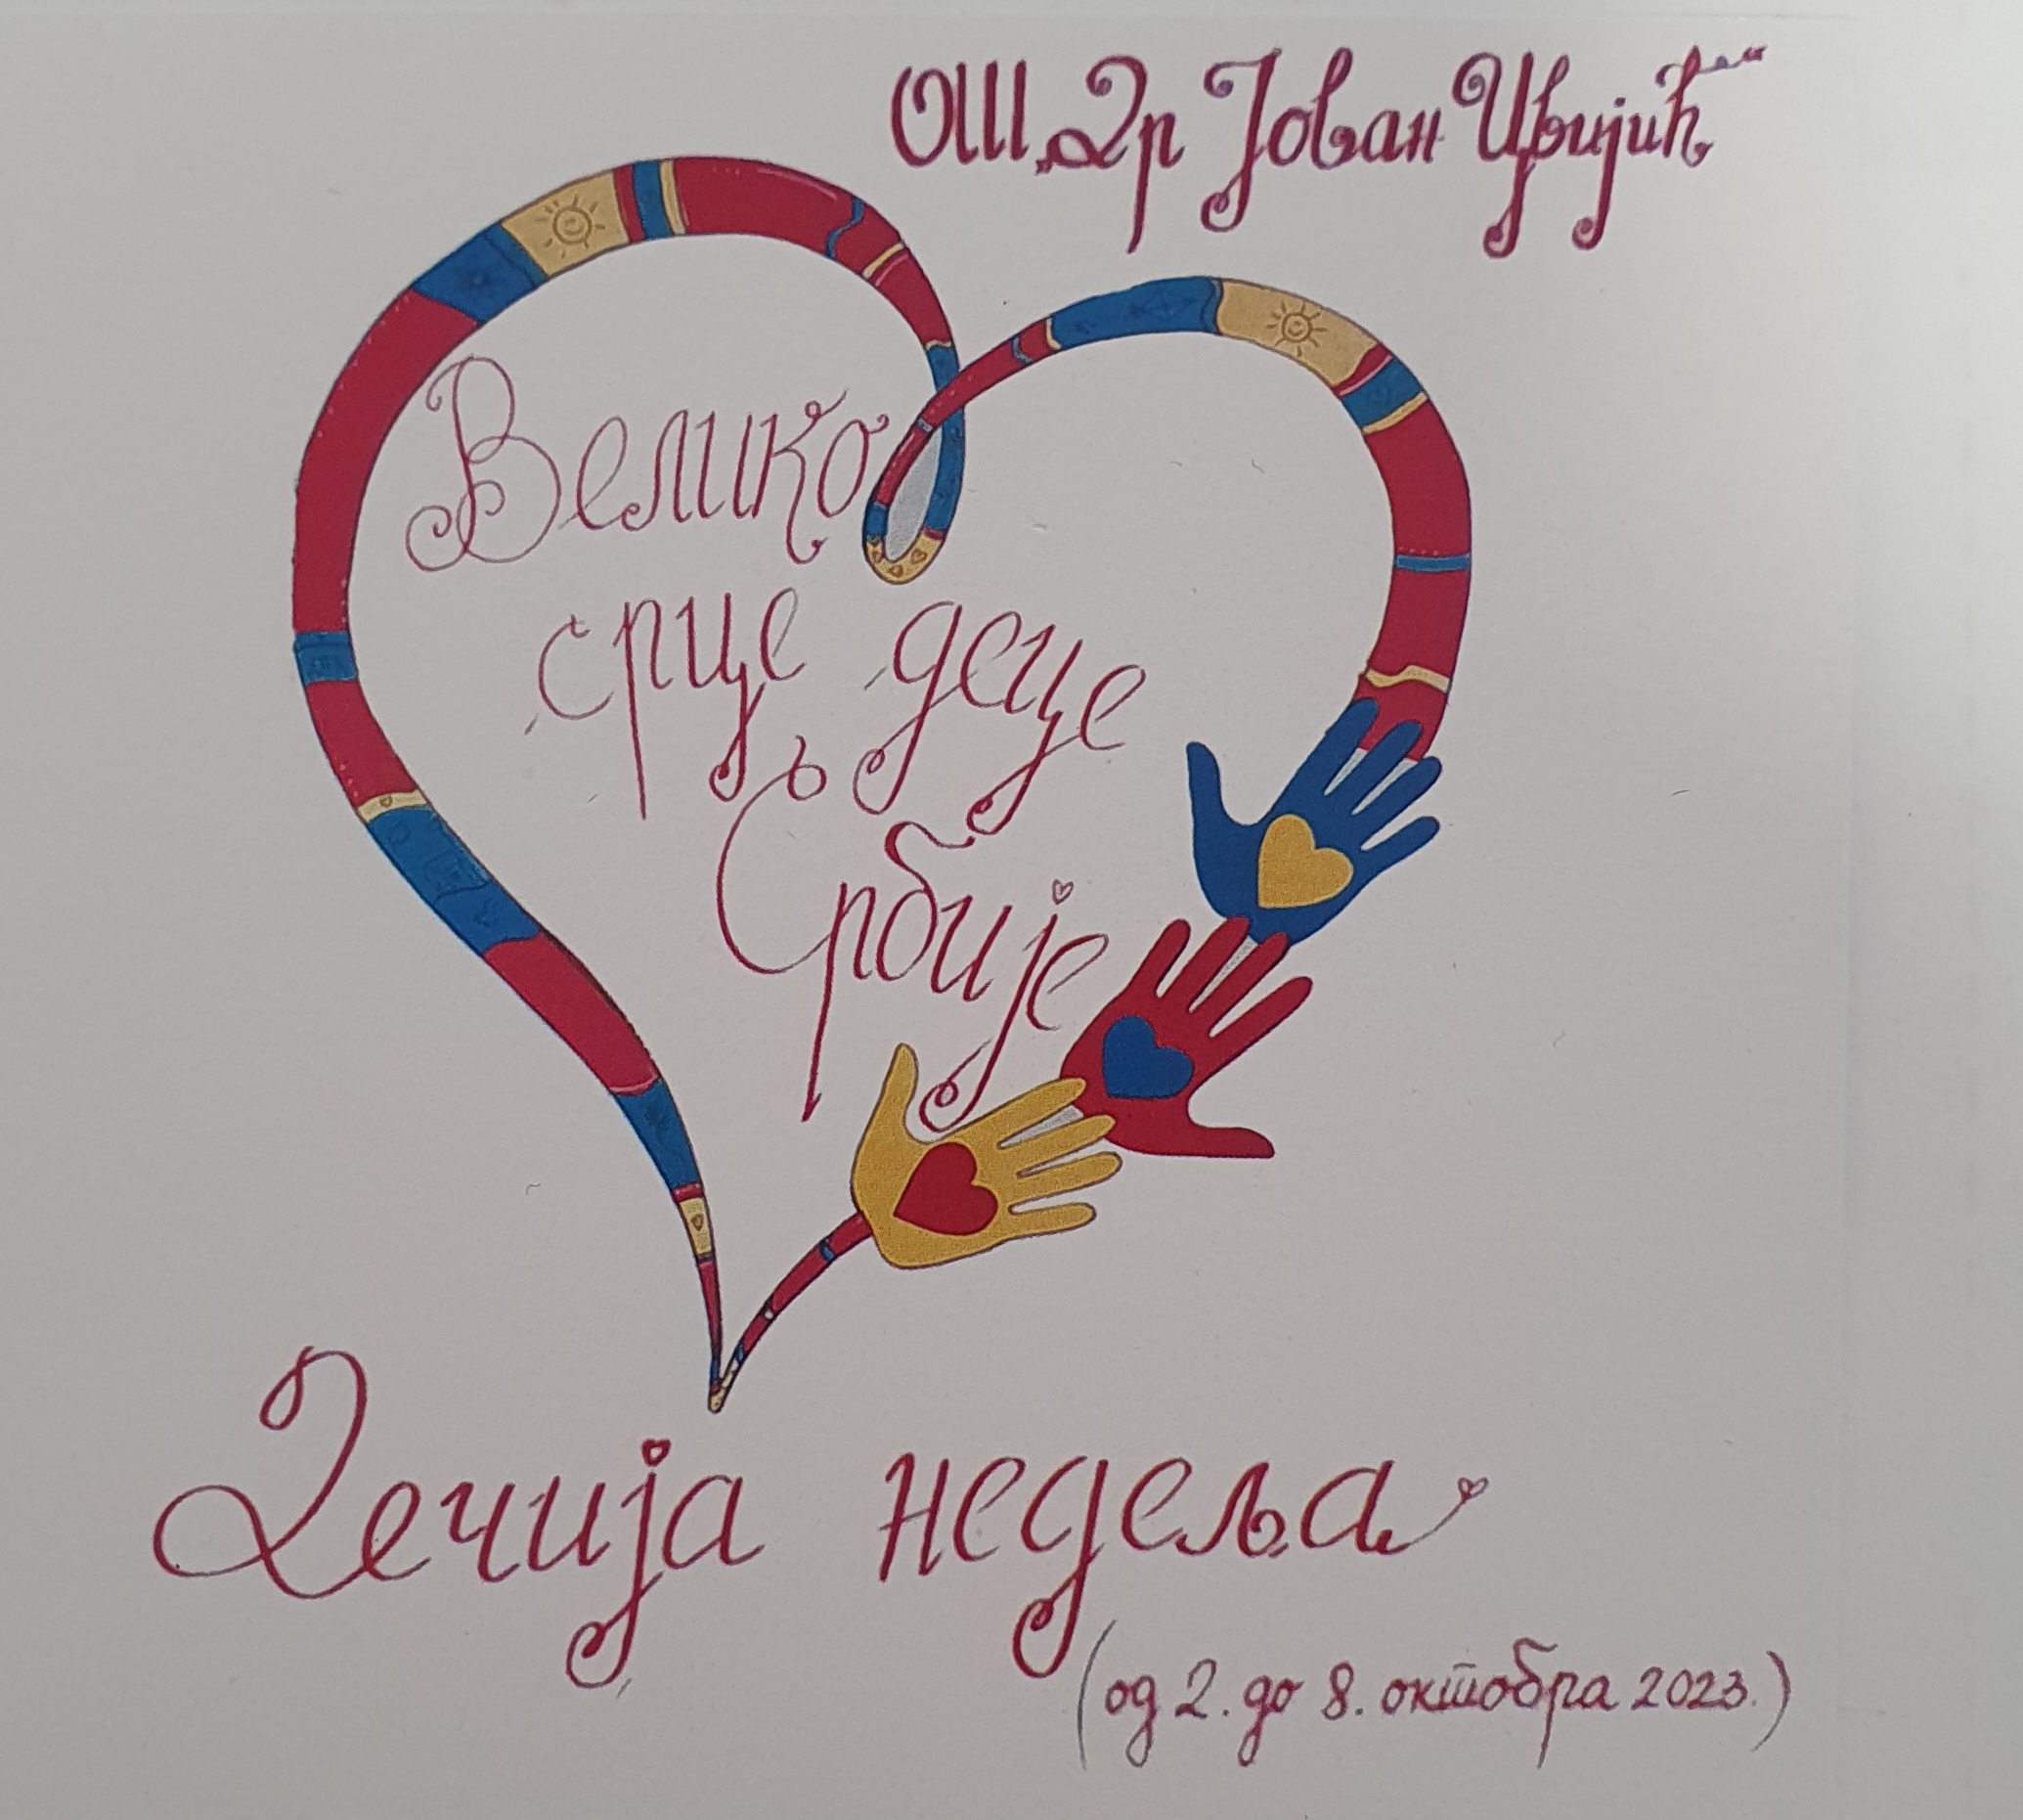 ОШ „Др Јован Цвијић“
Велико
срце деце
Србије
Дечија недеља
(од 2. до 8. октобра 2023.)